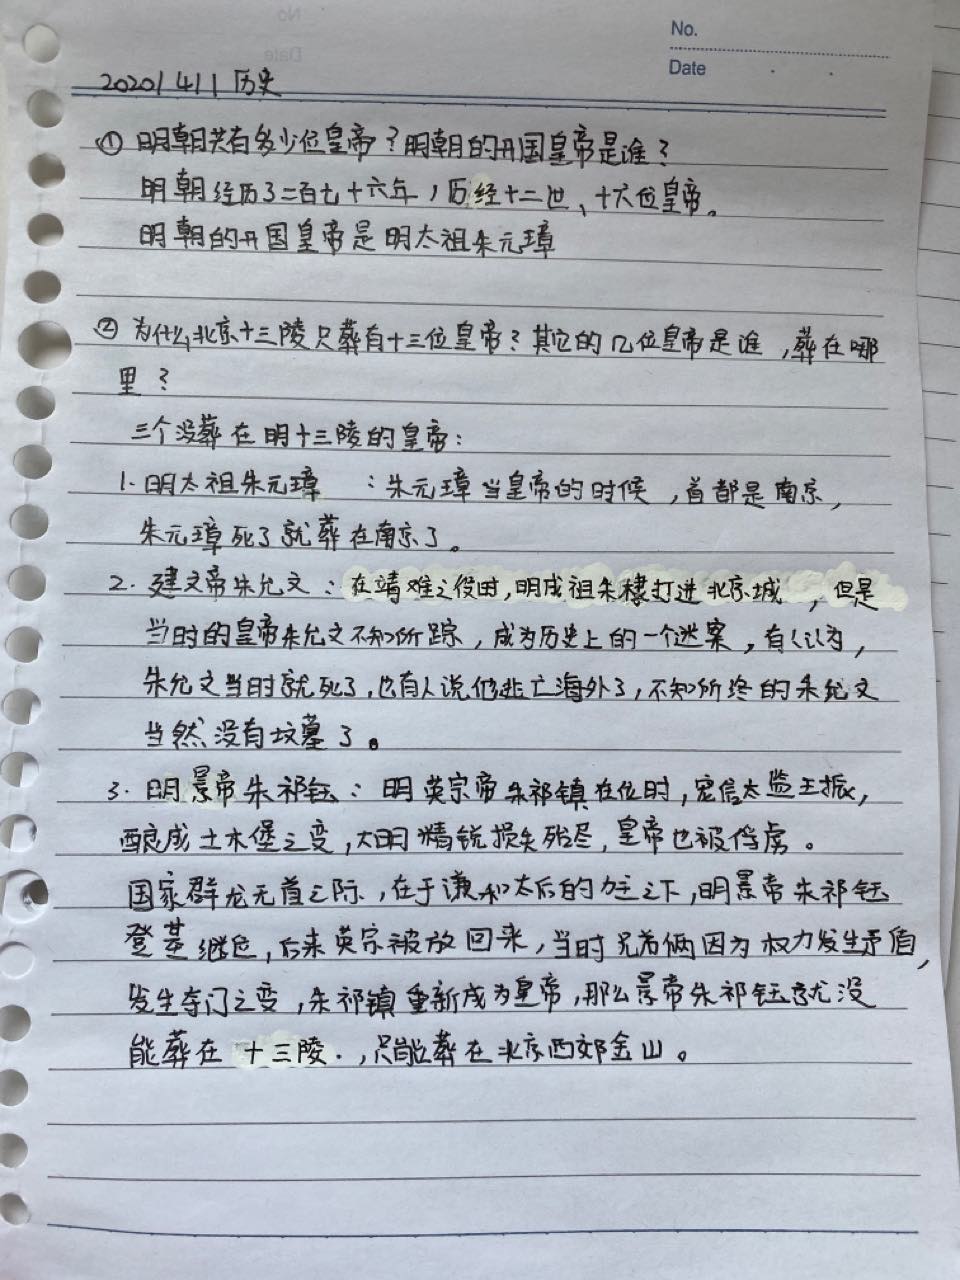 No.
Date
2020/4/1 历史
① 明朝共有多少位皇帝？明朝的开国皇帝是谁？
明朝经历了二百七十六年，历经十二世、十六位皇帝。
明朝的开国皇帝是明太祖朱元璋
② 为什么北京十三陵只葬有十三位皇帝？其它的几位皇帝是谁，葬在哪
里？
三个没葬在明十三陵的皇帝：
1. 明太祖朱元璋：朱元璋当皇帝的时候，首都是南京，
朱元璋死了就葬在南京了。
2. 建文帝朱允文：在靖难之役时，明成祖朱棣打进北京城，但是
当时的皇帝朱允文不知所踪，成为历史上的一个迷案，有人认为，
朱允文当时就死了，也有人说他逃亡海外了，不知所终的朱允文
当然没有坟墓了。
3. 明景帝朱祁钰：明英宗帝朱祁镇在位时，宠信太监王振，
酿成土木堡之变，大明精锐损失殆尽，皇帝也被俘虏。
国家群龙无首之际，在于谦和太后的力主之下，明景帝朱祁钰
登基继位，后来英宗被放回来，当时兄弟俩因为权力发生矛盾，
发生夺门之变，朱祁镇重新成为皇帝，那么景帝朱祁钰就没
能葬在十三陵.，只能葬在北京西郊金山。